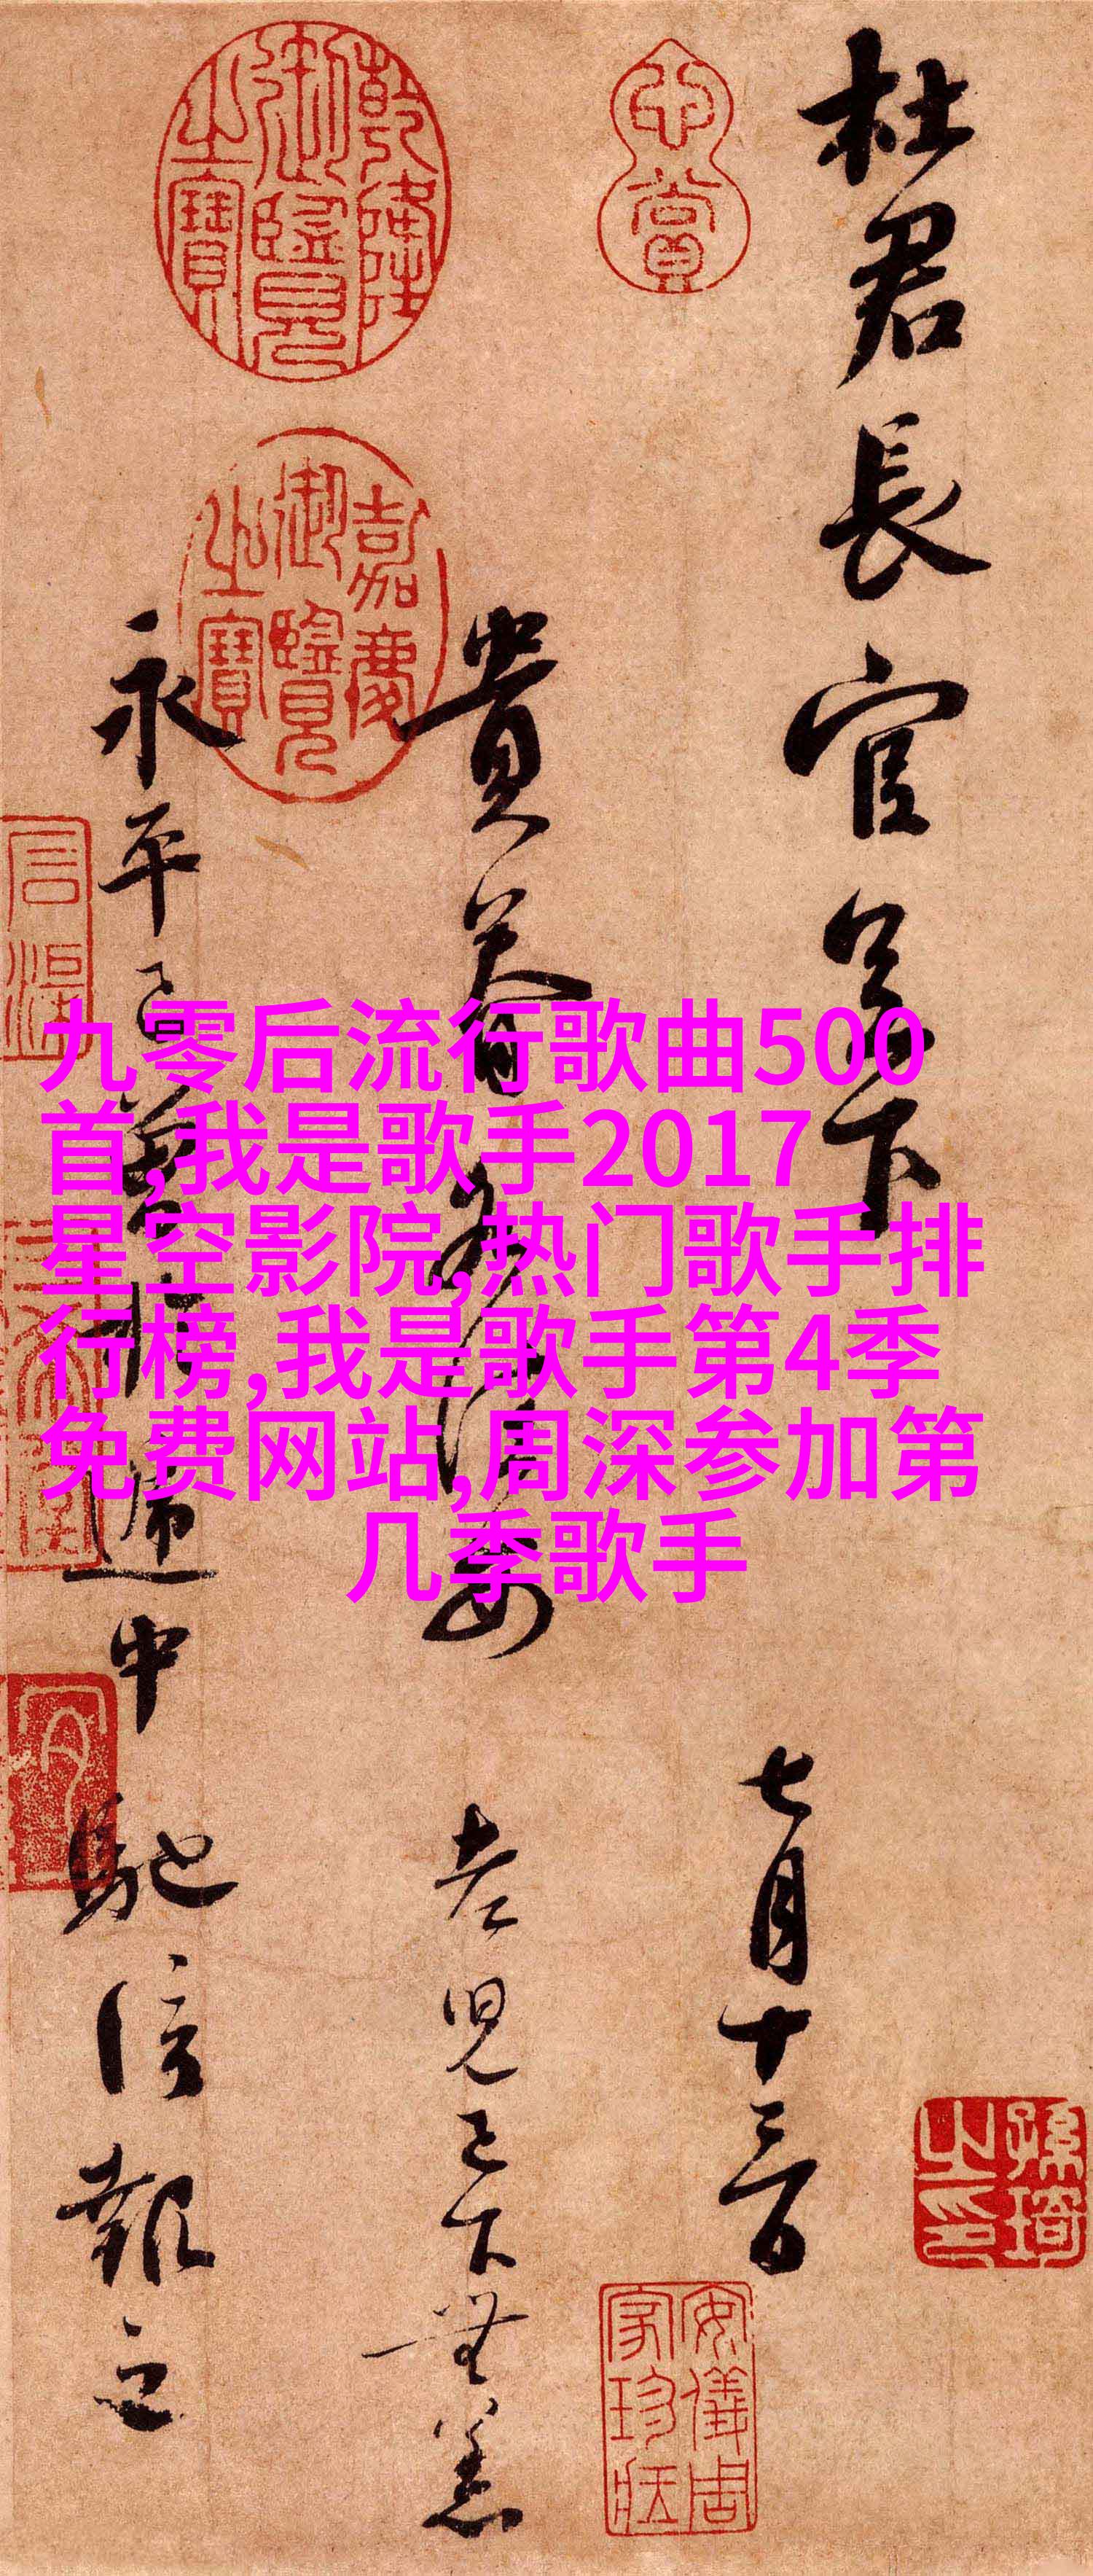 杜君長官足下
七月十三日
貴眷
老兒已下無恙
永平已
遞中
馳信報之
九零后流行歌曲500
首,我是歌手2017
星空影院,热门歌手排
行榜,我是歌手第4季
免费网站,周深参加第
几季歌手
乾隆御覽之寶
嘉慶御覽之寶
孫琦之印
安儀周家珍藏